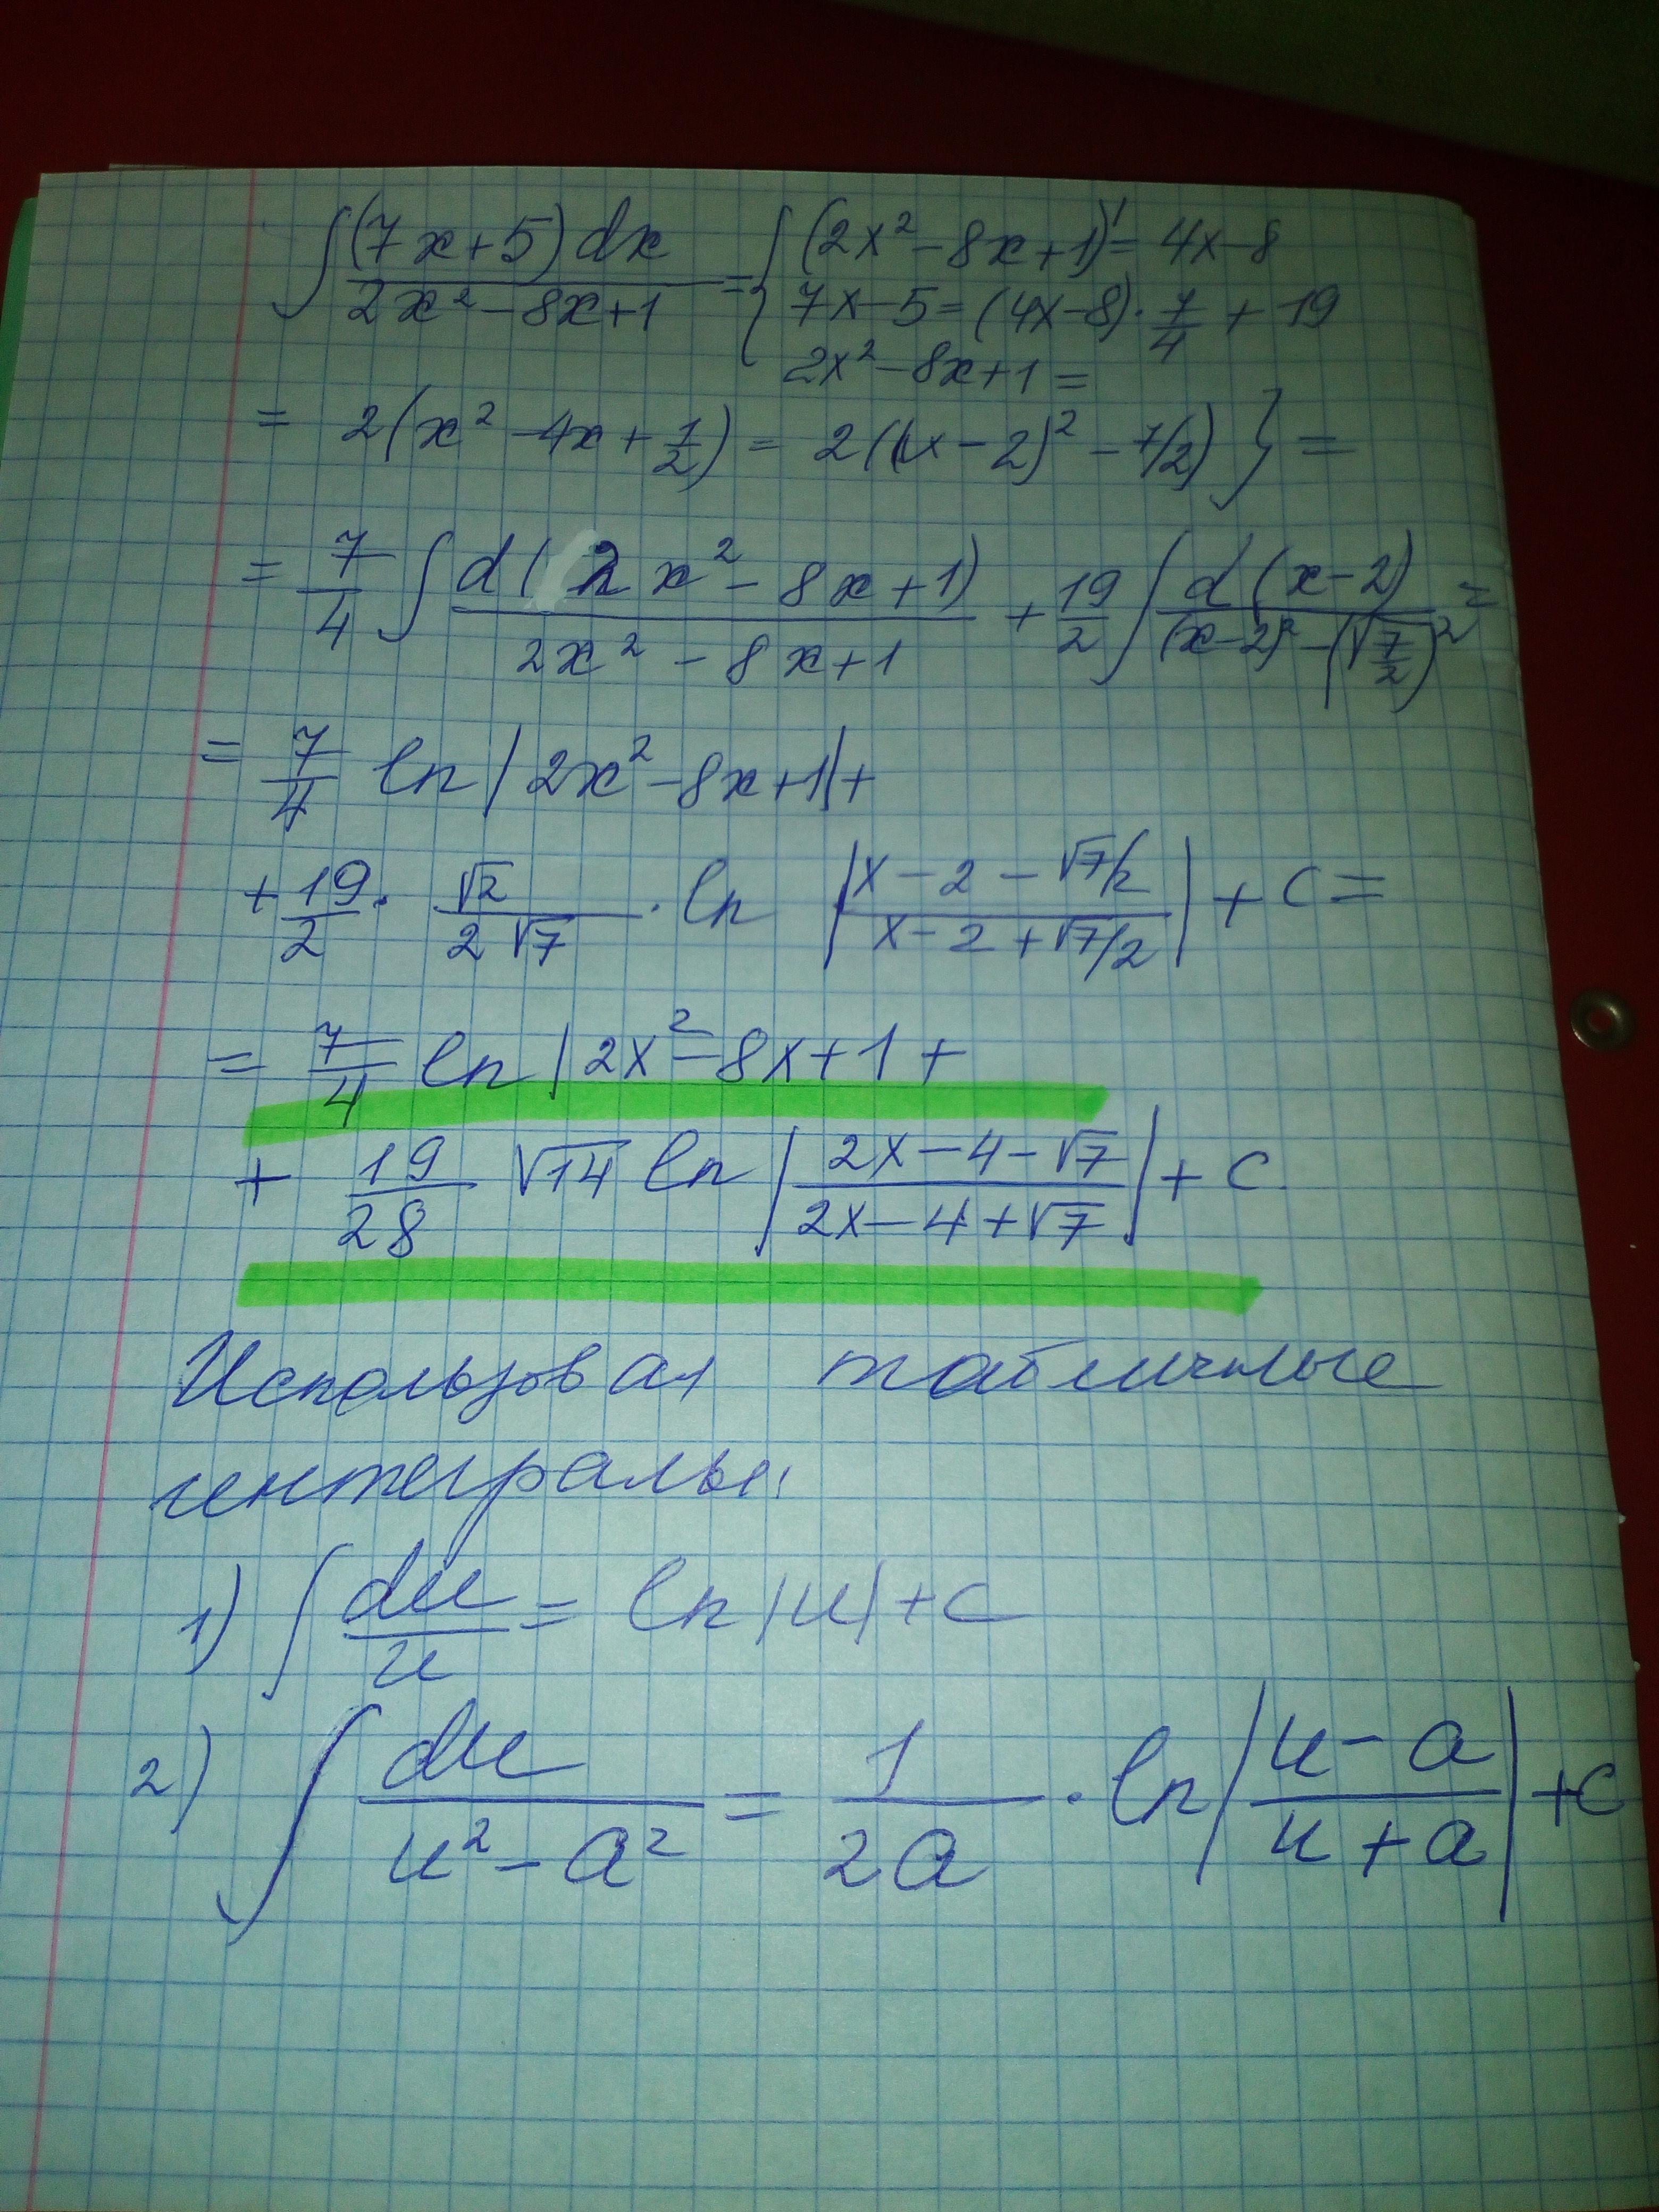 ∫ (7x+5)dx / (2x² - 8x + 1) = { (2x² - 8x + 1)' = 4x - 8
7x - 5 = (4x - 8) · 7/4 + 19
2x² - 8x + 1 =
= 2(x² - 4x + 1/2) = 2((x - 2)² - 7/2) } =
= 7/4 ∫ d(2x² - 8x + 1) / (2x² - 8x + 1) + 19/2 ∫ d(x-2) / ((x-2)² - (√(7/2))²) =
= 7/4 ln|2x² - 8x + 1| +
+ 19/2 · √2 / (2√7) · ln |(x - 2 - √7/2) / (x - 2 + √7/2)| + C =
= 7/4 ln |2x² - 8x + 1 +
+ 19/28 √14 ln |(2x - 4 - √7) / (2x - 4 + √7)| + C
Использовал табличные
интегралы:
1) ∫ du/u = ln|u| + C
2) ∫ du / (u² - a²) = 1/(2a) · ln |(u - a) / (u + a)| + C